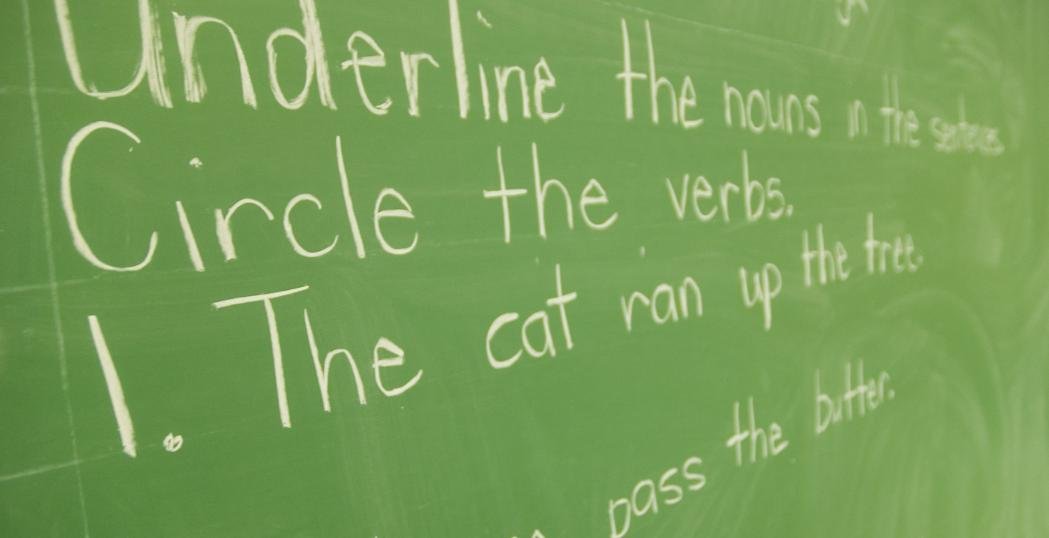 Underline the nouns in the sentences
Circle the verbs.
1. The cat ran up the tree.
pass the butter.